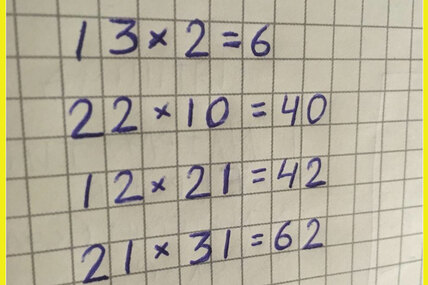 13×2=6
22×10=40
12×21=42
21×31=62